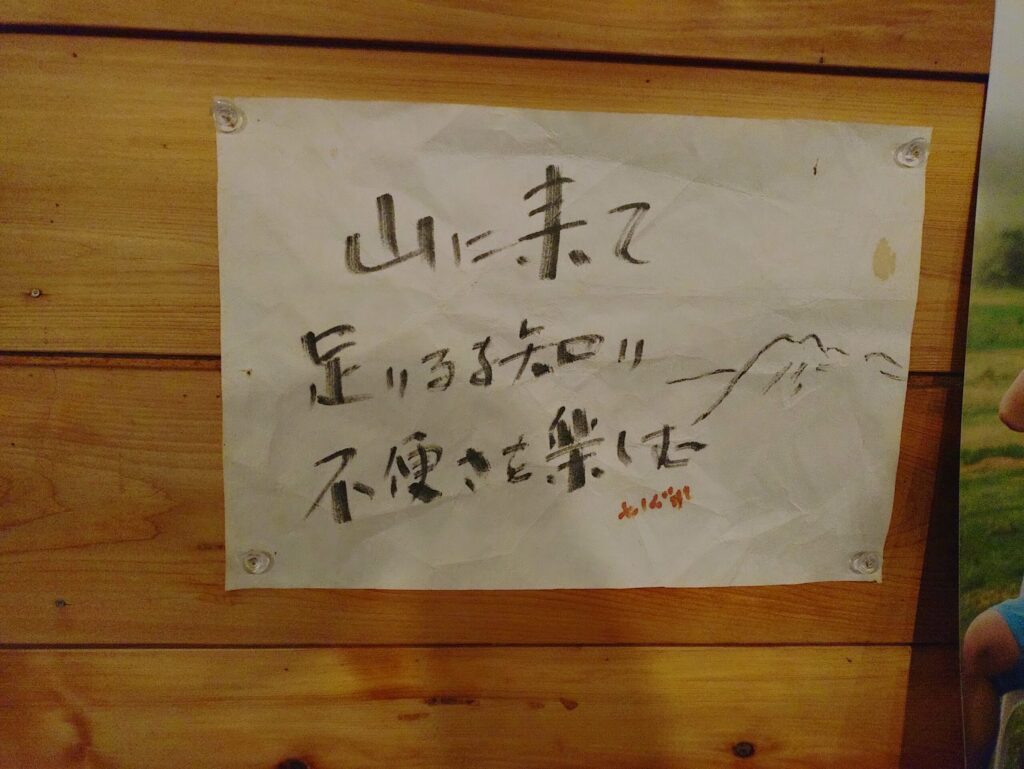 山に来て
足りるを知り
不便さを楽しむ